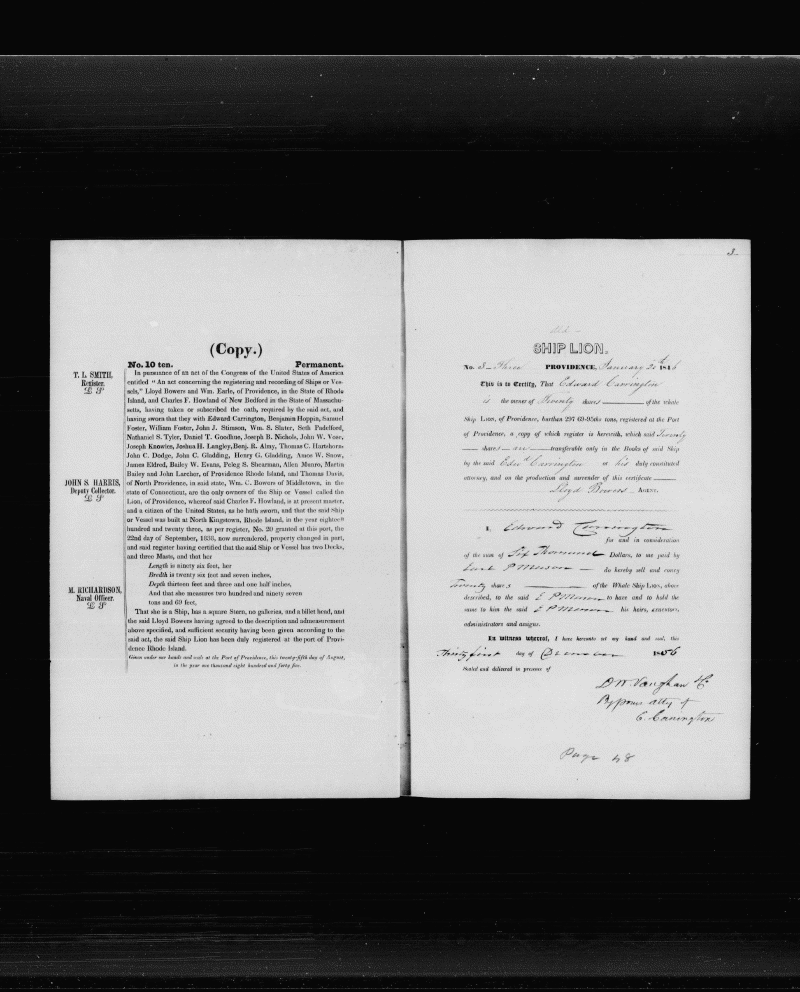 (Copy.)
No. 10 ten. Permanent.
T. L. SMITH,
Register.
L S
JOHN S. HARRIS,
Deputy Collector.
L S
M. RICHARDSON,
Naval Officer.
L S
In pursuance of an act of the Congress of the United States of America
entitled "An act concerning the registering and recording of Ships or Ves-
sels," Lloyd Bowers and Wm. Earle, of Providence, in the State of Rhode
Island, and Charles F. Howland of New Bedford in the State of Massachu-
setts, having taken or subscribed the oath, required by the said act, and
having sworn that they with Edward Carrington, Benjamin Hoppin, Samuel
Foster, William Foster, John J. Stimson, Wm. S. Slater, Seth Padelford,
Nathaniel S. Tyler, Daniel T. Goodhue, Joseph B. Nichols, John W. Vose,
Joseph Knowles, Joshua H. Langley, Benj. R. Almy, Thomas C. Hartshorn
John C. Dodge, John C. Gladding, Henry G. Gladding, Amos W. Snow,
James Eldred, Bailey W. Evans, Peleg S. Shearman, Allen Munro, Martin
Bailey and John Larcher, of Providence Rhode Island, and Thomas Davis,
of North Providence, in said state, Wm. C. Bowers of Middletown, in the
state of Connecticut, are the only owners of the Ship or Vessel called the
Lion, of Providence, whereof said Charles F. Howland, is at present master,
and a citizen of the United States, as he hath sworn, and that the said Ship
or Vessel was built at North Kingstown, Rhode Island, in the year eighteen
hundred and twenty three, as per register, No. 20 granted at this port, the
22nd day of September, 1836, now surrendered, property changed in part,
and said register having certified that the said Ship or Vessel has two Decks,
and three Masts, and that her
Length is ninety six feet, her
Bredth is twenty six feet and seven inches,
Depth thirteen feet and three and one half inches,
And that she measures two hundred and ninety seven
tons and 69 feet,
That she is a Ship, has a square Stern, no galleries, and a billet head, and
the said Lloyd Bowers having agreed to the description and admeasurement
above specified, and sufficient security having been given according to the
said act, the said Ship Lion has been duly registered at the port of Provi-
dence Rhode Island.
Given under our hands and seals at the Port of Providence, this twenty-fifth day of August,
in the year one thousand eight hundred and forty five.
3
SHIP LION.
No. 3 - Three PROVIDENCE, January 2th 1846
This is to Certify, That Edward Carrington
is the owner of Twenty shares of the whole
Ship Lion, of Providence, burthen 297 69-95ths tons, registered at the Port
of Providence, a copy of which register is herewith, which said Twenty
shares are transferable only in the Books of said Ship
by the said Edwd Carrington or his duly constituted
attorney, and on the production and surrender of this certificate
Lloyd Bowers AGENT.
I, Edward Carrington
for and in consideration
of the sum of Six Thousand Dollars, to me paid by
Earl P Mason do hereby sell and convey
Twenty shares of the Whole Ship Lion, above
described, to the said E P Mason to have and to hold the
same to him the said E P Mason his heirs, executors,
administrators and assigns.
In witness whereof, I have hereunto set my hand and seal, this
Thirty first day of December 1846
Sealed and delivered in presence of
D W Vaughan
atty of
E Carrington
Page 48